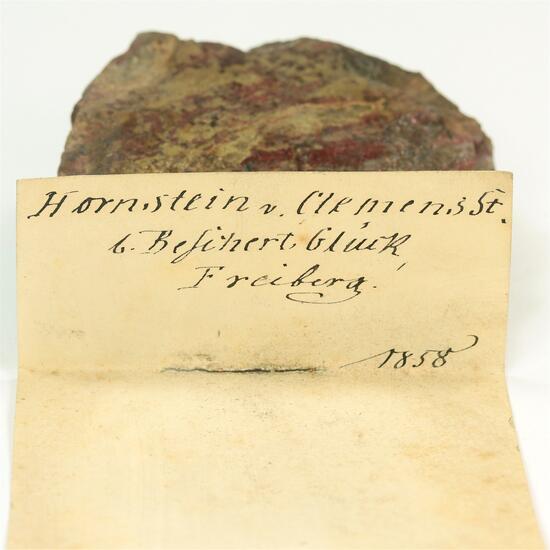 Hornstein v. Clemens St.
b. Beschert Glück
Freiberg.
1858